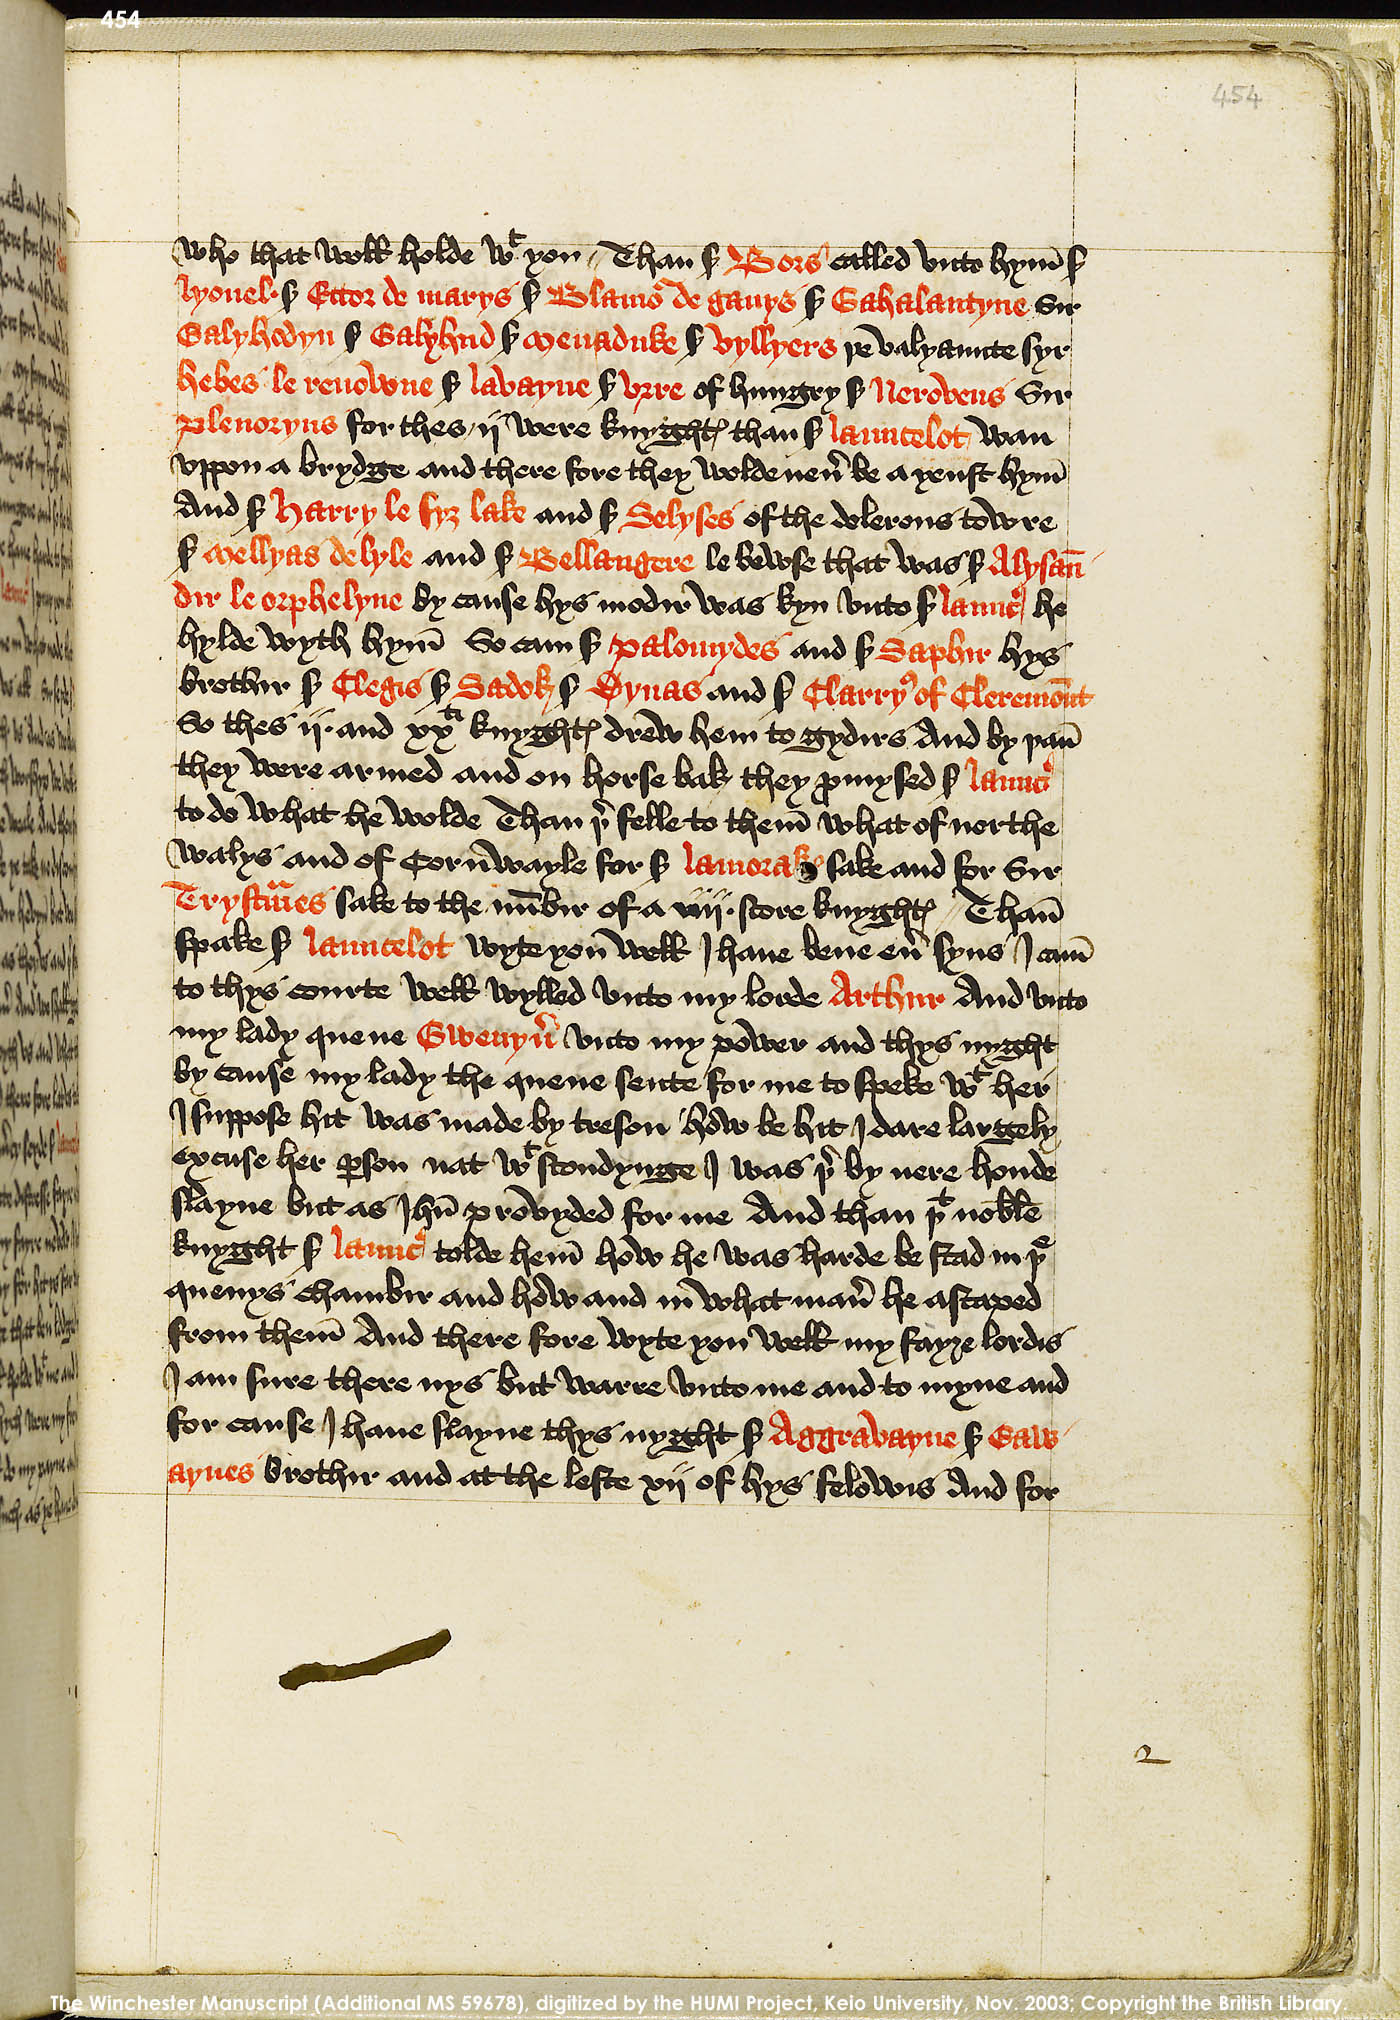 454
454
who that woll holde wᵗ you // Than ẜ Bors called vnto hym̄ ẜ
lyonel · ẜ Ector de marys ẜ Blamoʳ de ganys ẜ Gahalantyne Sir
Galyhodyn ẜ Galyhud ẜ Menaduke ẜ Vyllyers þe valyaunte syr
hebes le renowne ẜ lavayne ẜ Vrre of hungry ẜ Nerovens Sir
Plenoryus for thes ij were knyghtꝭ than ẜ launcelot wan
vppon a brydge and there fore they wolde neuͥ be a yenst hym̄
And ẜ Harry le fyz lake and ẜ Selyses of the dolerous towre
ẜ Mellyas de lyle and ẜ Bellangere le bewse that was ẜ Alysan̄
dir le orphelyne by cause hys modir was kyn vnto ẜ launcͦ he
hylde wyth hym̄ So cam ẜ Palomydes and ẜ Saphir hys
brothir ẜ Clegis ẜ Sadok ẜ Dynas and ẜ Clarryꝰ of Cleremoūt
So thes ij · and xxᵗⁱ knyghtꝭ drew hem to gydirs And by þan̄
they were armed and on horse bak they ꝓmysed ẜ launcͦ
to do what he wolde Than þͥ felle to them̄ what of northe
walys and of Cornwayle for ẜ lamorake sake and for Sir
Trystᵃmes sake to the nūbir of a iiij · score knyghtꝭ // Than̄
spake ẜ launcelot wyte you well I haue bene euͥ syns I cam̄
to thys courte well wylled vnto my lorde Arthur And vnto
my lady quene Gwenyuͥ vnto my power and thys nyght
by cause my lady the quene sente for me to speke wᵗ her
I suppose hit was made by treson how be hit I dare largely
excuse her ꝑson nat wᵗ stondynge I was þͥ by nere honde
slayne but as Jhū provyded for me And than þᵗ noble
knyght ẜ launcͦ tolde hem̄ how he was harde be stad in þᵉ
quenys chambir and how and in what man̄ he ascaped
from them̄ And there fore wyte you well my fayre lordis
I am sure there nys but warre vnto me and to myne and
for cause I haue slayne thys nyght ẜ Aggravayne ẜ Gaw
aynes brothir and at the leste xij of hys felowis And for
2
The Winchester Manuscript (Additional MS 59678), digitized by the HUMI Project, Keio University, Nov. 2003; Copyright the British Library.